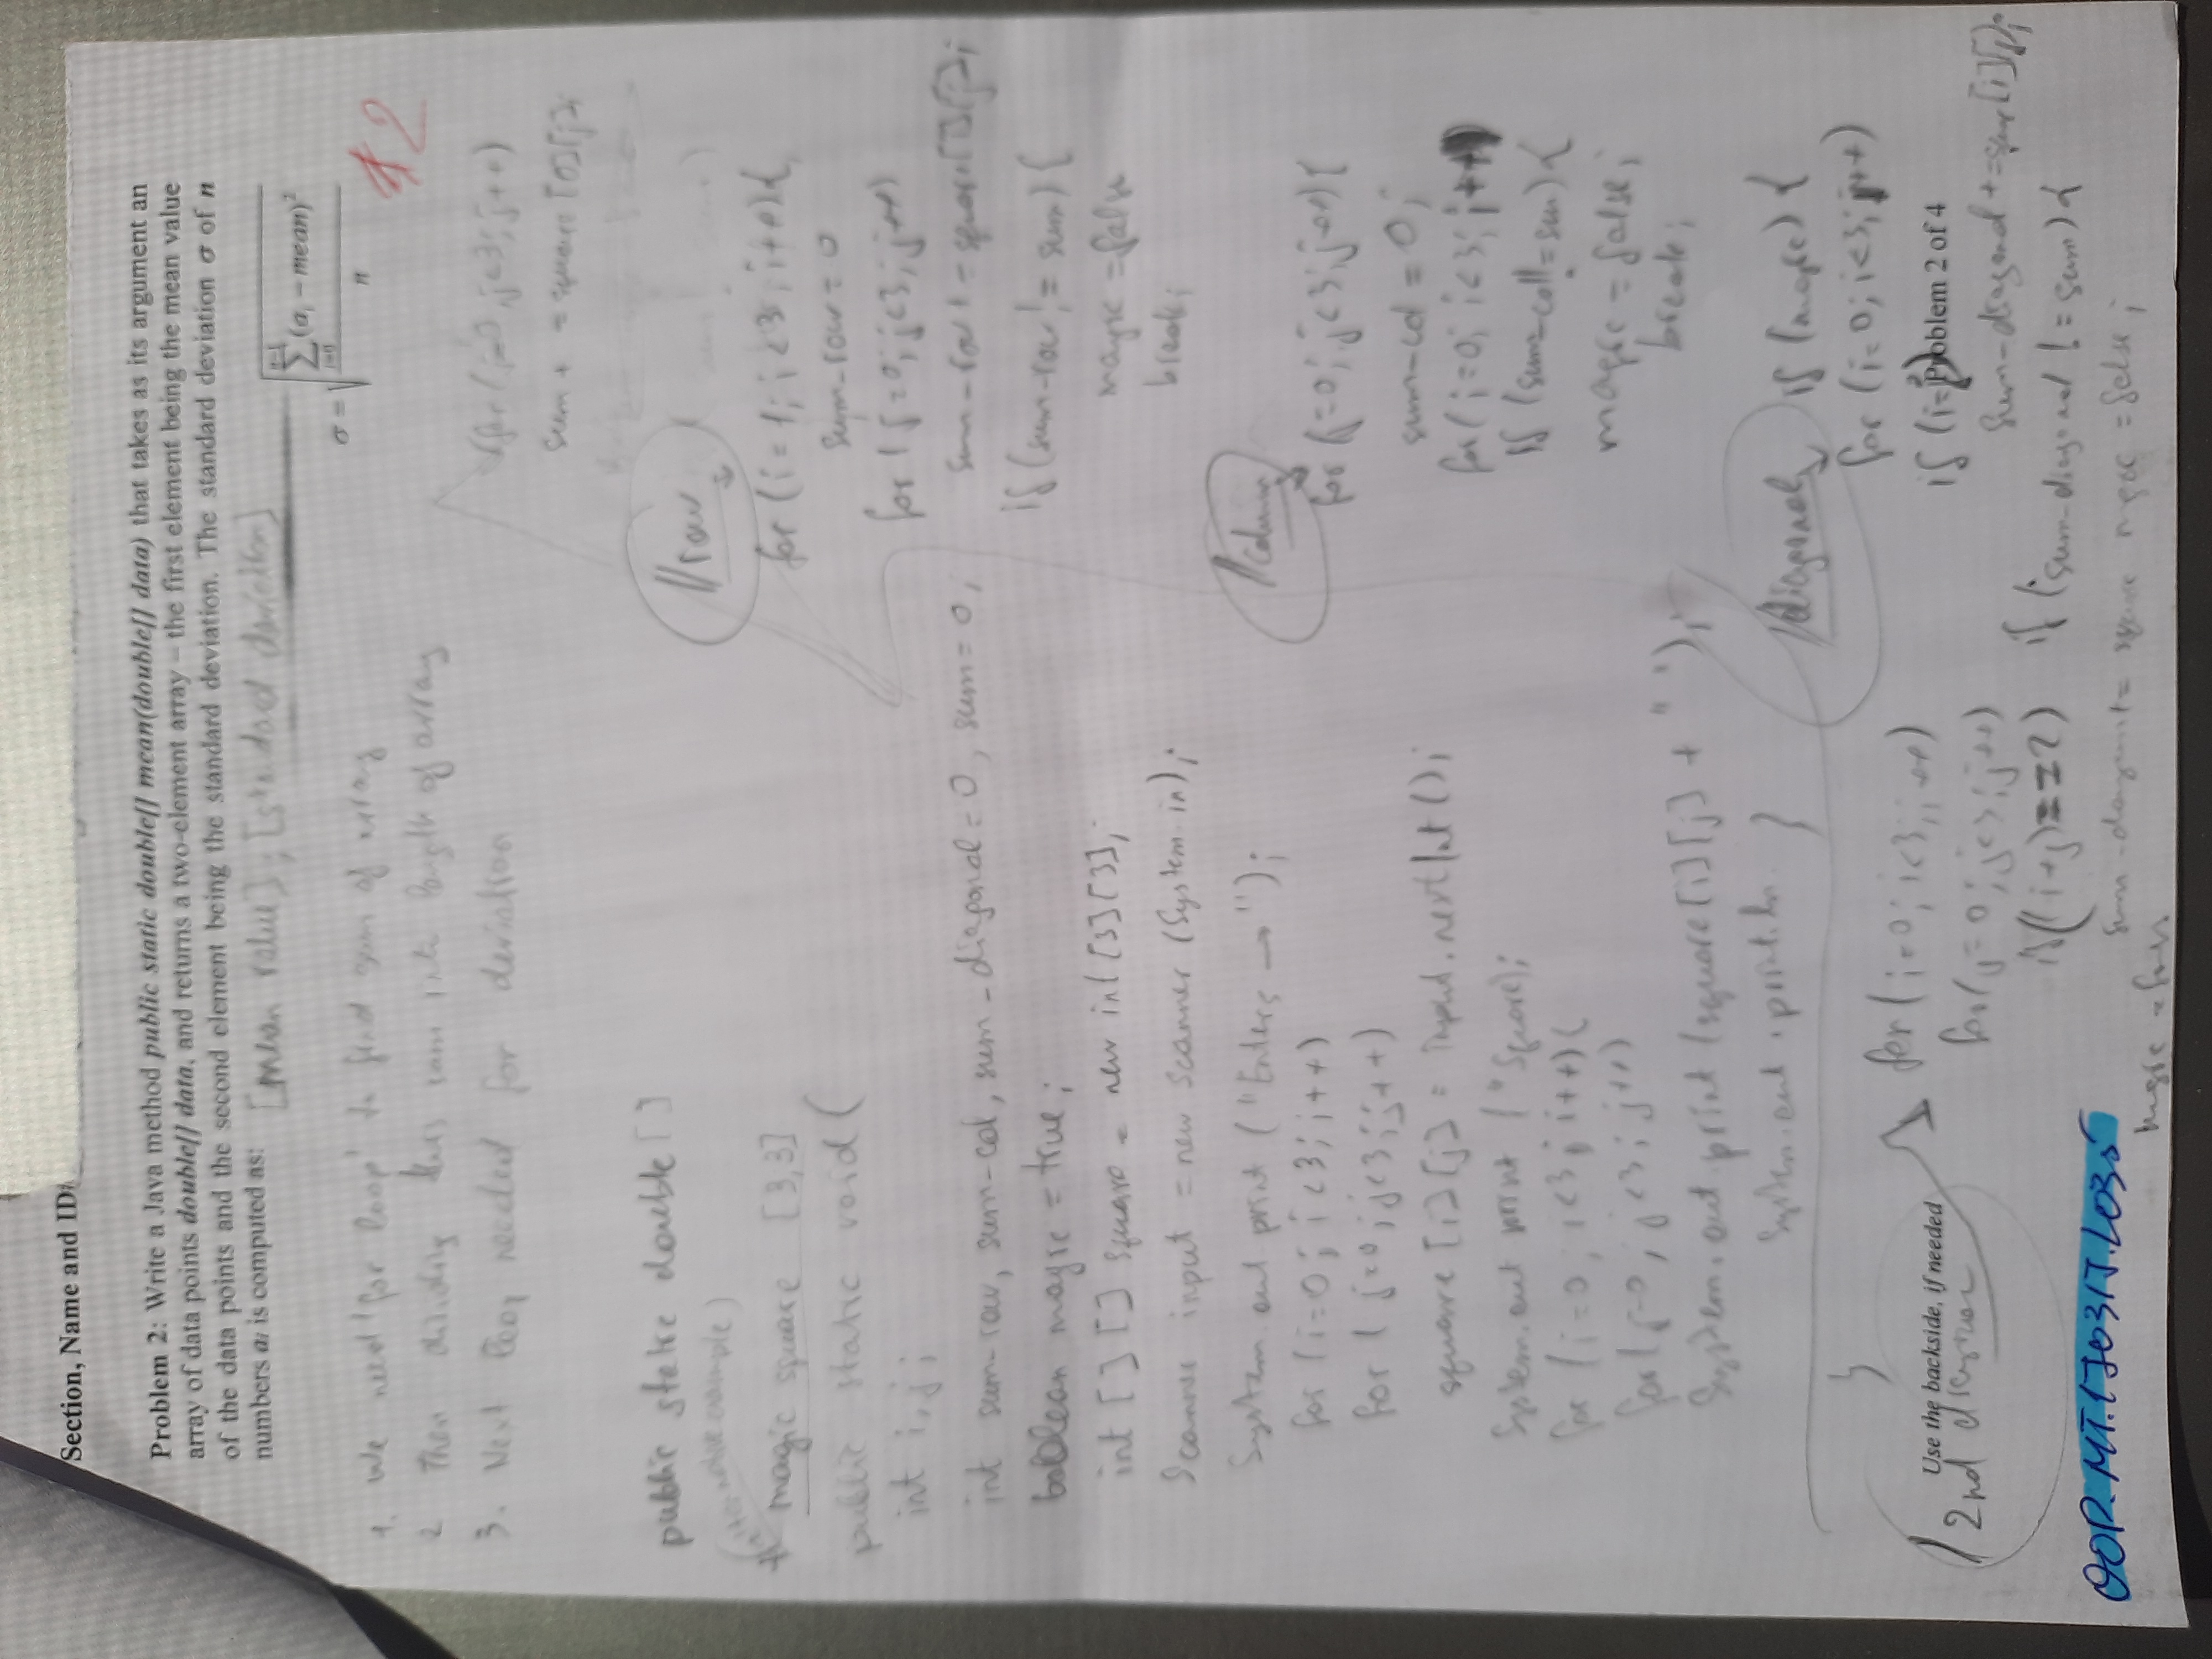 Section, Name and ID
Problem 2: Write a Java method public static double[] mean(double[] data) that takes as its argument an
array of data points double[] data, and returns a two-element array – the first element being the mean value
of the data points and the second element being the standard deviation. The standard deviation σ of n
numbers aᵢ is computed as:
[mean value], [standard deviation]
σ = √(∑_{i=0}^{n-1} (aᵢ – mean)² / n)
2
1. We need 'for loop' to find sum of array
2 Then dividing this sum into length of array
3. Next loop needed for deviation
public static double []
example)
magic square [3,3]
public static void (
int i, j;
int sum-row, sum-col, sum_diagonal = 0, sum = 0;
boolean magic = true;
int [] [] square = new int [3][3];
Scanner input = new Scanner (System.in);
System.out print ("Enter: → ");
for (i=0; i<3; i++)
for ( j=0; j<3; j++)
square [i][j] = input.nextInt ();
System.out print ("Square);
for (i=0; i<3; i++){
for(j=0; j<3; j++)
System.out.print (square[i][j] + " ");
System.out.println }
for (j=0, j<3; j++)
sum + = square [0][j];
//row
for (i = 1; i<3; i++){
sum-row = 0
for ( j=0; j<3; j++)
sum-row + = square[i][j];
if (sum-row != sum) {
magic = false
break;
//column
for (j=0; j<3; j++){
sum-col = 0;
for(i=0; i<3; i++)
if (sum-col != sum) {
magic = false;
break;
//diagonal
if (magic) {
for (i=0; i<3; i++)
if (i=j)
sum-diagonal += [i][j];
if (sum-diagonal != sum) {
magic = false;
2nd
for (i=0; i<3; i++)
for(j=0; j<3; j++)
if((i+j)==2)
Use the backside, if needed
Problem 2 of 4
OOP.MT.170317.L035